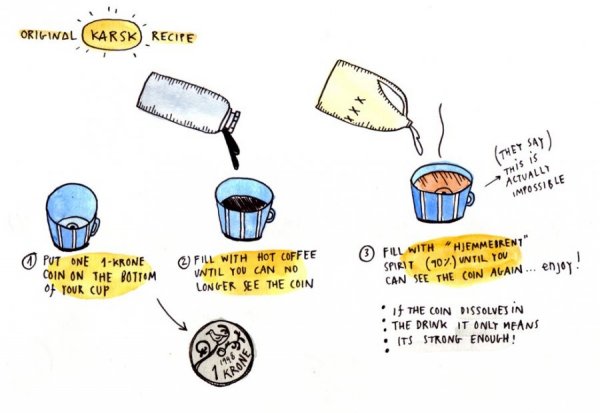 ORIGINAL KARSK RECIPE
XXX
(THEY SAY)
THIS IS
ACTUALLY
IMPOSSIBLE
1) PUT ONE 1-KRONE
COIN ON THE BOTTOM
of YOUR CUP
2) FILL WITH HOT COFFEE
UNTIL YOU CAN NO
LONGER SEE THE COIN
3) FILL WITH "HJEMMEBRENT"
SPIRIT (90%) UNTIL YOU
CAN SEE THE COIN AGAIN... enjoy!
1 KRONE
IF THE COIN DISSOLVES IN
THE DRINK IT ONLY MEANS
ITS STRONG ENOUGH!